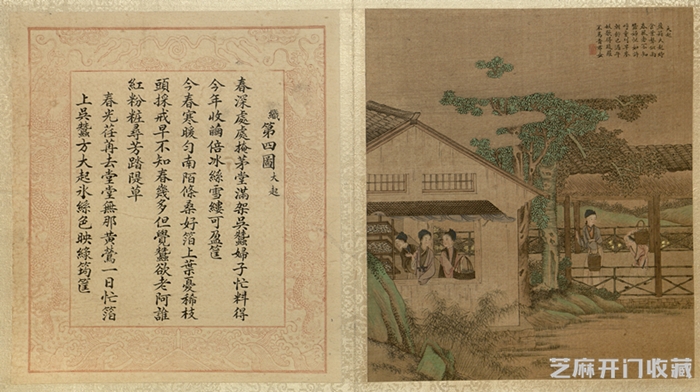 織第四圖大起
春深處處掩茅堂滿架吳蠶婦子忙料得
今年收繭倍冰絲雪縷可盈筐
今春寒暖勻南陌條桑好箔上葉憂稀枝
頭採戒早不知春幾多但覺蠶欲老阿誰
紅粉粧尋芳踏隄草
春光荏苒去堂堂無那黃鶯一日忙箔
上吳蠶方大起氷絲色映綠筠筐
大起
芝麻开门收藏